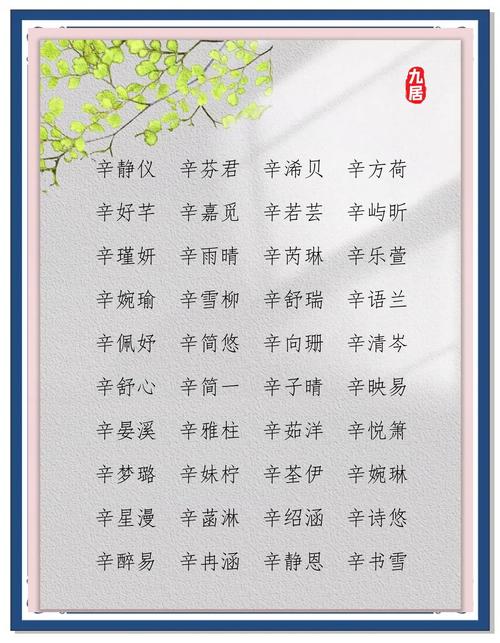 九居
辛静仪 辛芬君 辛浠贝 辛方荷
辛好芊 辛嘉觅 辛若芸 辛屿昕
辛瑾妍 辛雨晴 辛芮琳 辛乐萱
辛婉瑜 辛雪柳 辛舒瑞 辛语兰
辛佩妤 辛简悠 辛向珊 辛清岑
辛舒心 辛简一 辛子晴 辛映易
辛晏溪 辛雅柱 辛茹洋 辛悦箫
辛梦璐 辛妹柠 辛荃伊 辛婉琳
辛星漫 辛菡淋 辛绍涵 辛诗悠
辛醉易 辛冉涵 辛静恩 辛书雪